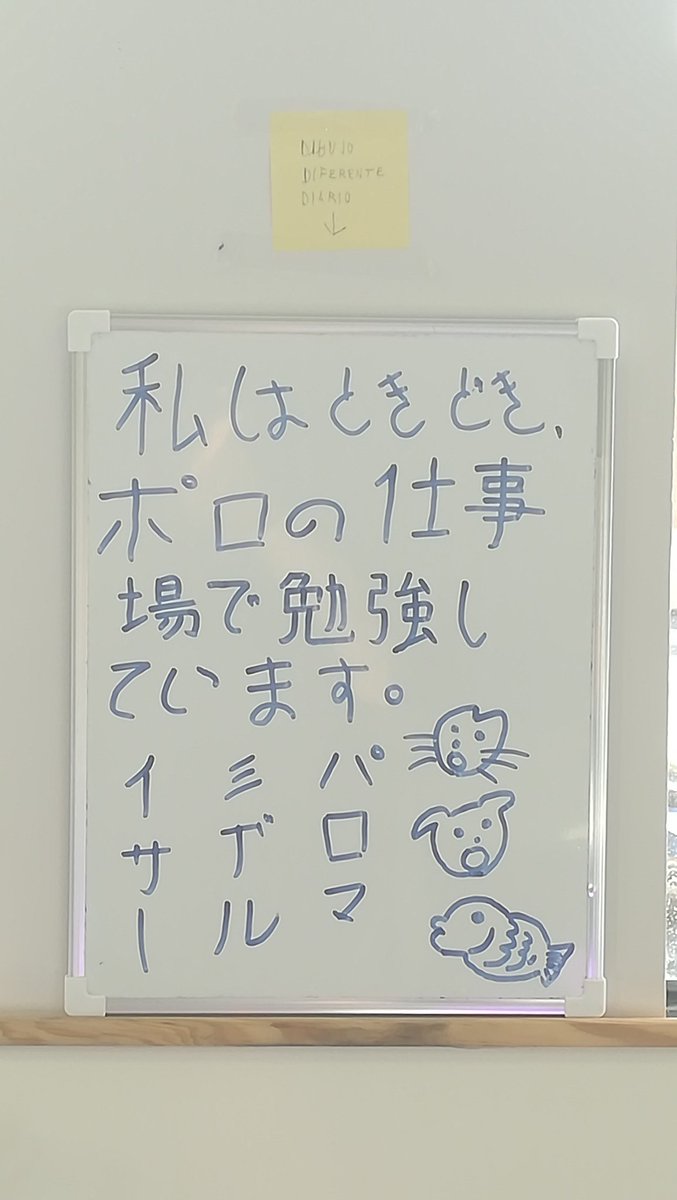 DIBUJO
DIFERENTE
DIARIO
↓
私はときどき、
ポロの仕事
場で勉強し
ています。
パロマ
ミゲル
イサー